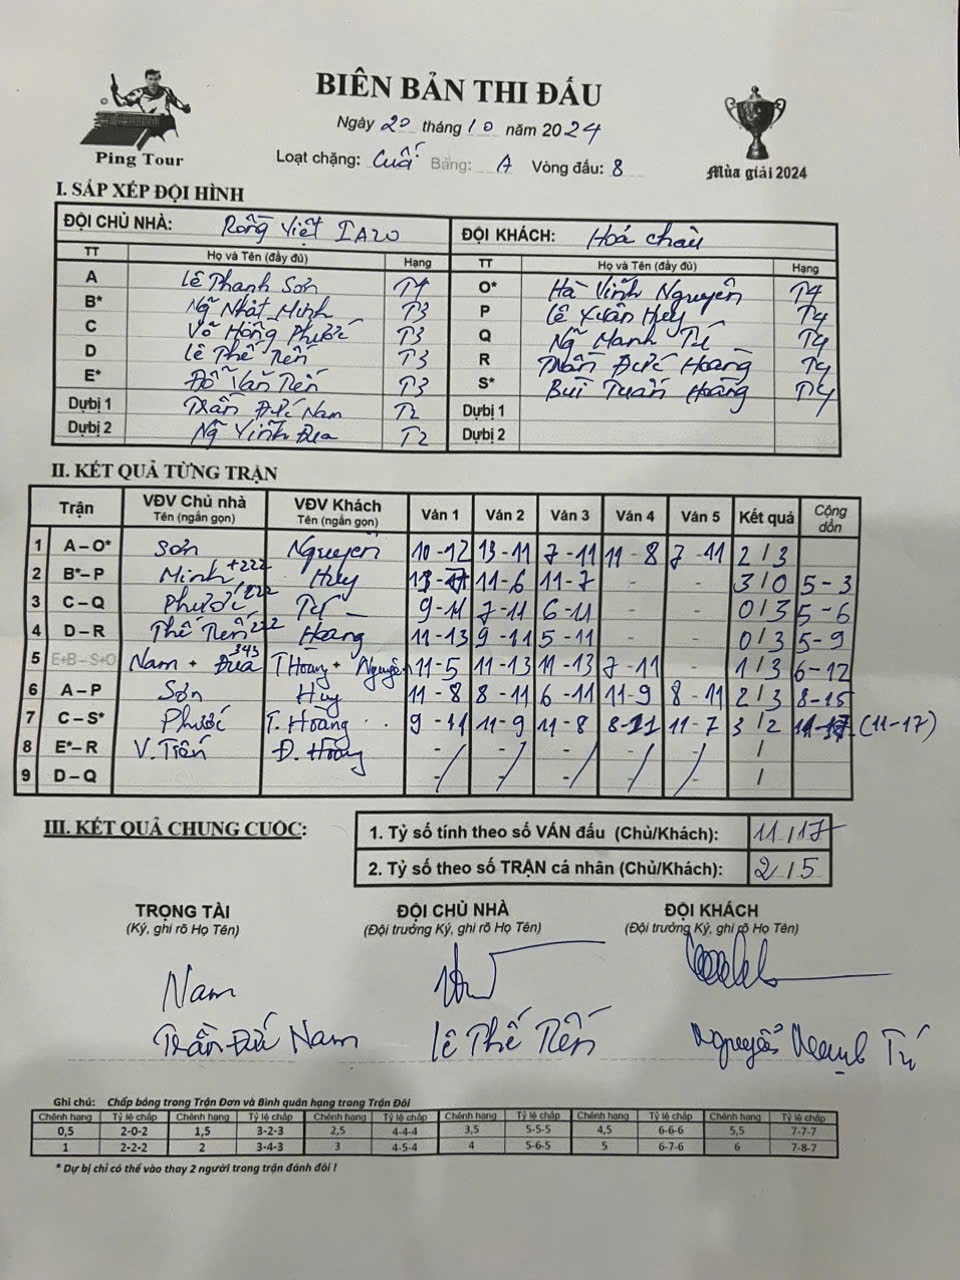 BIÊN BẢN THI ĐẤU
Ngày 20 tháng 10 năm 2024
Ping Tour
Loạt chặng: Cuối Bảng: A Vòng đấu: 8
Mùa giải 2024
I. SẮP XẾP ĐỘI HÌNH
ĐỘI CHỦ NHÀ: Rồng Việt IA20 ĐỘI KHÁCH: Hoá Châu
TT Họ và Tên (đầy đủ) Hạng TT Họ và Tên (đầy đủ) Hạng
A Lê Thanh Sơn T4 O* Hà Vĩnh Nguyên T4
B* Ng̃ Nhật Minh T3 P Lê Xuân Huy T4
C Võ Hồng Phước T3 Q Ng̃ Mạnh Tú T4
D Lê Thế Tiến T3 R Trần Đức Hoàng T4
E* Đỗ Văn Tiến T3 S* Bùi Tuấn Hoàng T4
Dựbị 1 Trần Đức Nam T2 Dựbị 1
Dựbị 2 Ng̃ Vĩnh Đua T2 Dựbị 2
II. KẾT QUẢ TỪNG TRẬN
Trận VĐV Chủ nhà Tên (ngắn gọn) VĐV Khách Tên (ngắn gọn) Ván 1 Ván 2 Ván 3 Ván 4 Ván 5 Kết quả Cộng dồn
1 A – O* Sơn Nguyên 10 - 12 13 - 11 7 - 11 11 - 8 7 - 11 2 / 3
2 B* – P Minh +222 Huy 13 - 11 - 6 11 - 7 - - 3 / 0 5 - 3
3 C – Q Phước 222 Tú 9 - 11 7 - 11 6 - 11 - - 0 / 3 5 - 6
4 D – R Thế Tiến 222 Hoàng 11 - 13 9 - 11 5 - 11 - - 0 / 3 5 - 9
5 E+B – S+O Nam + Đua 343 T Hoàng + Nguyên 11 - 5 11 - 13 11 - 13 7 - 11 - 1 / 3 6 - 12
6 A – P Sơn Huy 11 - 8 8 - 11 6 - 11 11 - 9 8 - 11 2 / 3 8 - 15
7 C – S* Phước T. Hoàng 9 - 11 11 - 9 11 - 8 8 - 11 11 - 7 3 / 2 (11 - 17)
8 E* – R V. Tiến Đ. Hoàng - - - - - /
9 D – Q - - - - - /
III. KẾT QUẢ CHUNG CUỘC:
1. Tỷ số tính theo số VÁN đấu (Chủ/Khách): 11 / 17
2. Tỷ số theo số TRẬN cá nhân (Chủ/Khách): 2 / 5
TRỌNG TÀI ĐỘI CHỦ NHÀ ĐỘI KHÁCH
(Ký, ghi rõ Họ Tên) (Đội trưởng Ký, ghi rõ Họ Tên) (Đội trưởng Ký, ghi rõ Họ Tên)
Nam
Trần Đức Nam Lê Thế Tiến Nguyễn Mạnh Tú
Ghi chú: Chấp bóng trong Trận Đơn và Bình quân hạng trong Trận Đôi
Chênh hạng Tỷ lệ chấp Chênh hạng Tỷ lệ chấp Chênh hạng Tỷ lệ chấp Chênh hạng Tỷ lệ chấp Chênh hạng Tỷ lệ chấp Chênh hạng Tỷ lệ chấp
0,5 2-0-2 1,5 3-2-3 2,5 4-4-4 3,5 5-5-5 4,5 6-6-6 5,5 7-7-7
1 2-2-2 2 3-4-3 3 4-5-4 4 5-6-5 5 6-7-6 6 7-8-7
* Dự bị chỉ có thể vào thay 2 người trong trận đánh đôi !